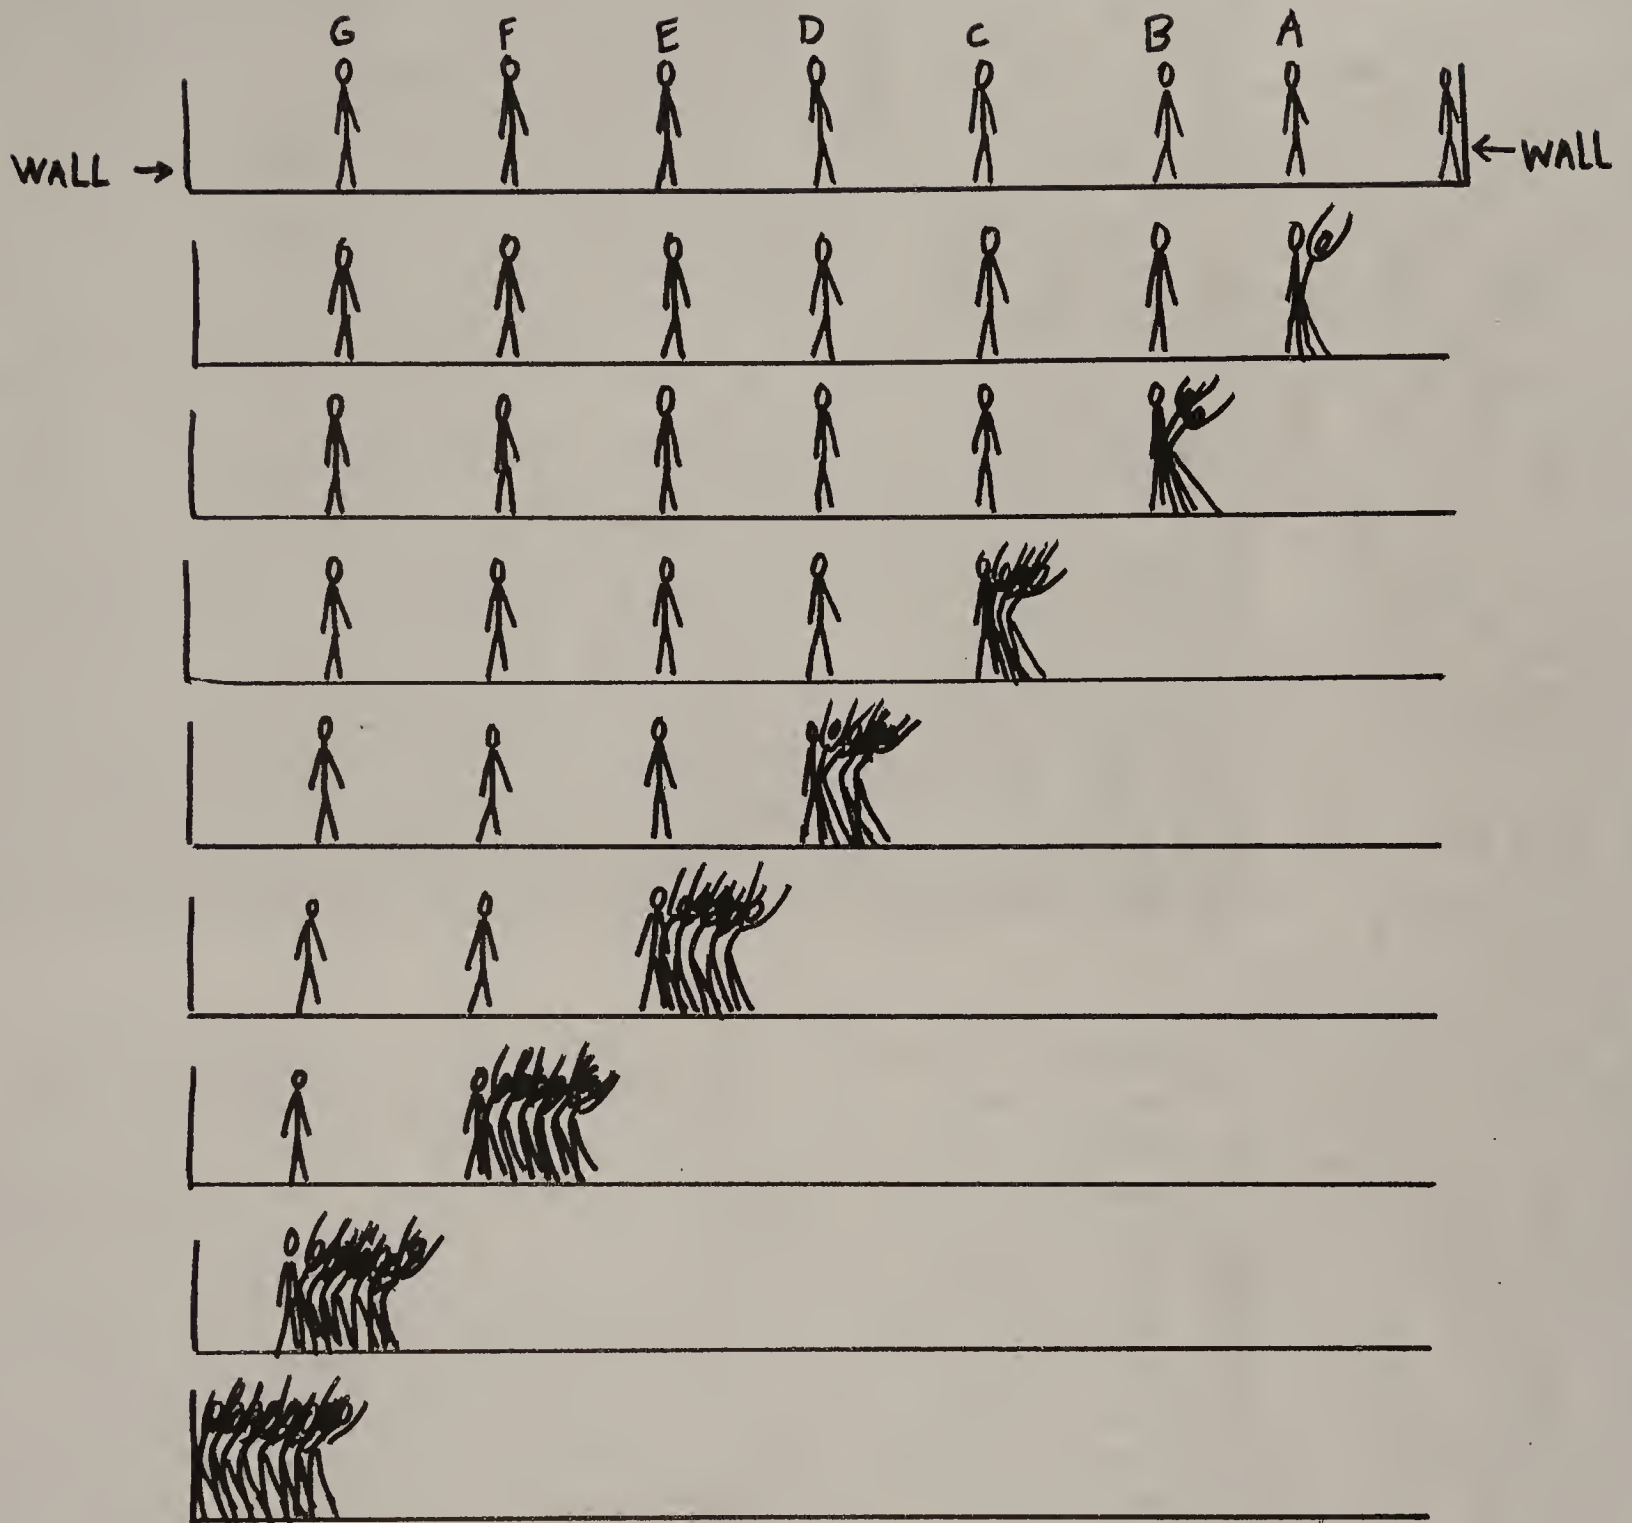 G F E D C B A
WALL → ← WALL